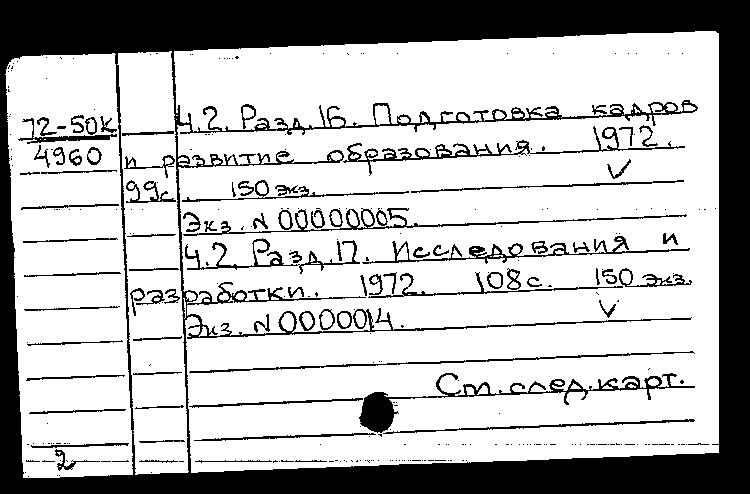 72-50К
4960
Ч.2. Разд.16. Подготовка кадров
и развитие образования. 1972.
99с. 150 экз.
Экз. N 00000005.
Ч.2. Разд.17. Исследования и
разработки. 1972. 108с. 150 экз.
Экз. N 0000014.
См. след. карт.
2